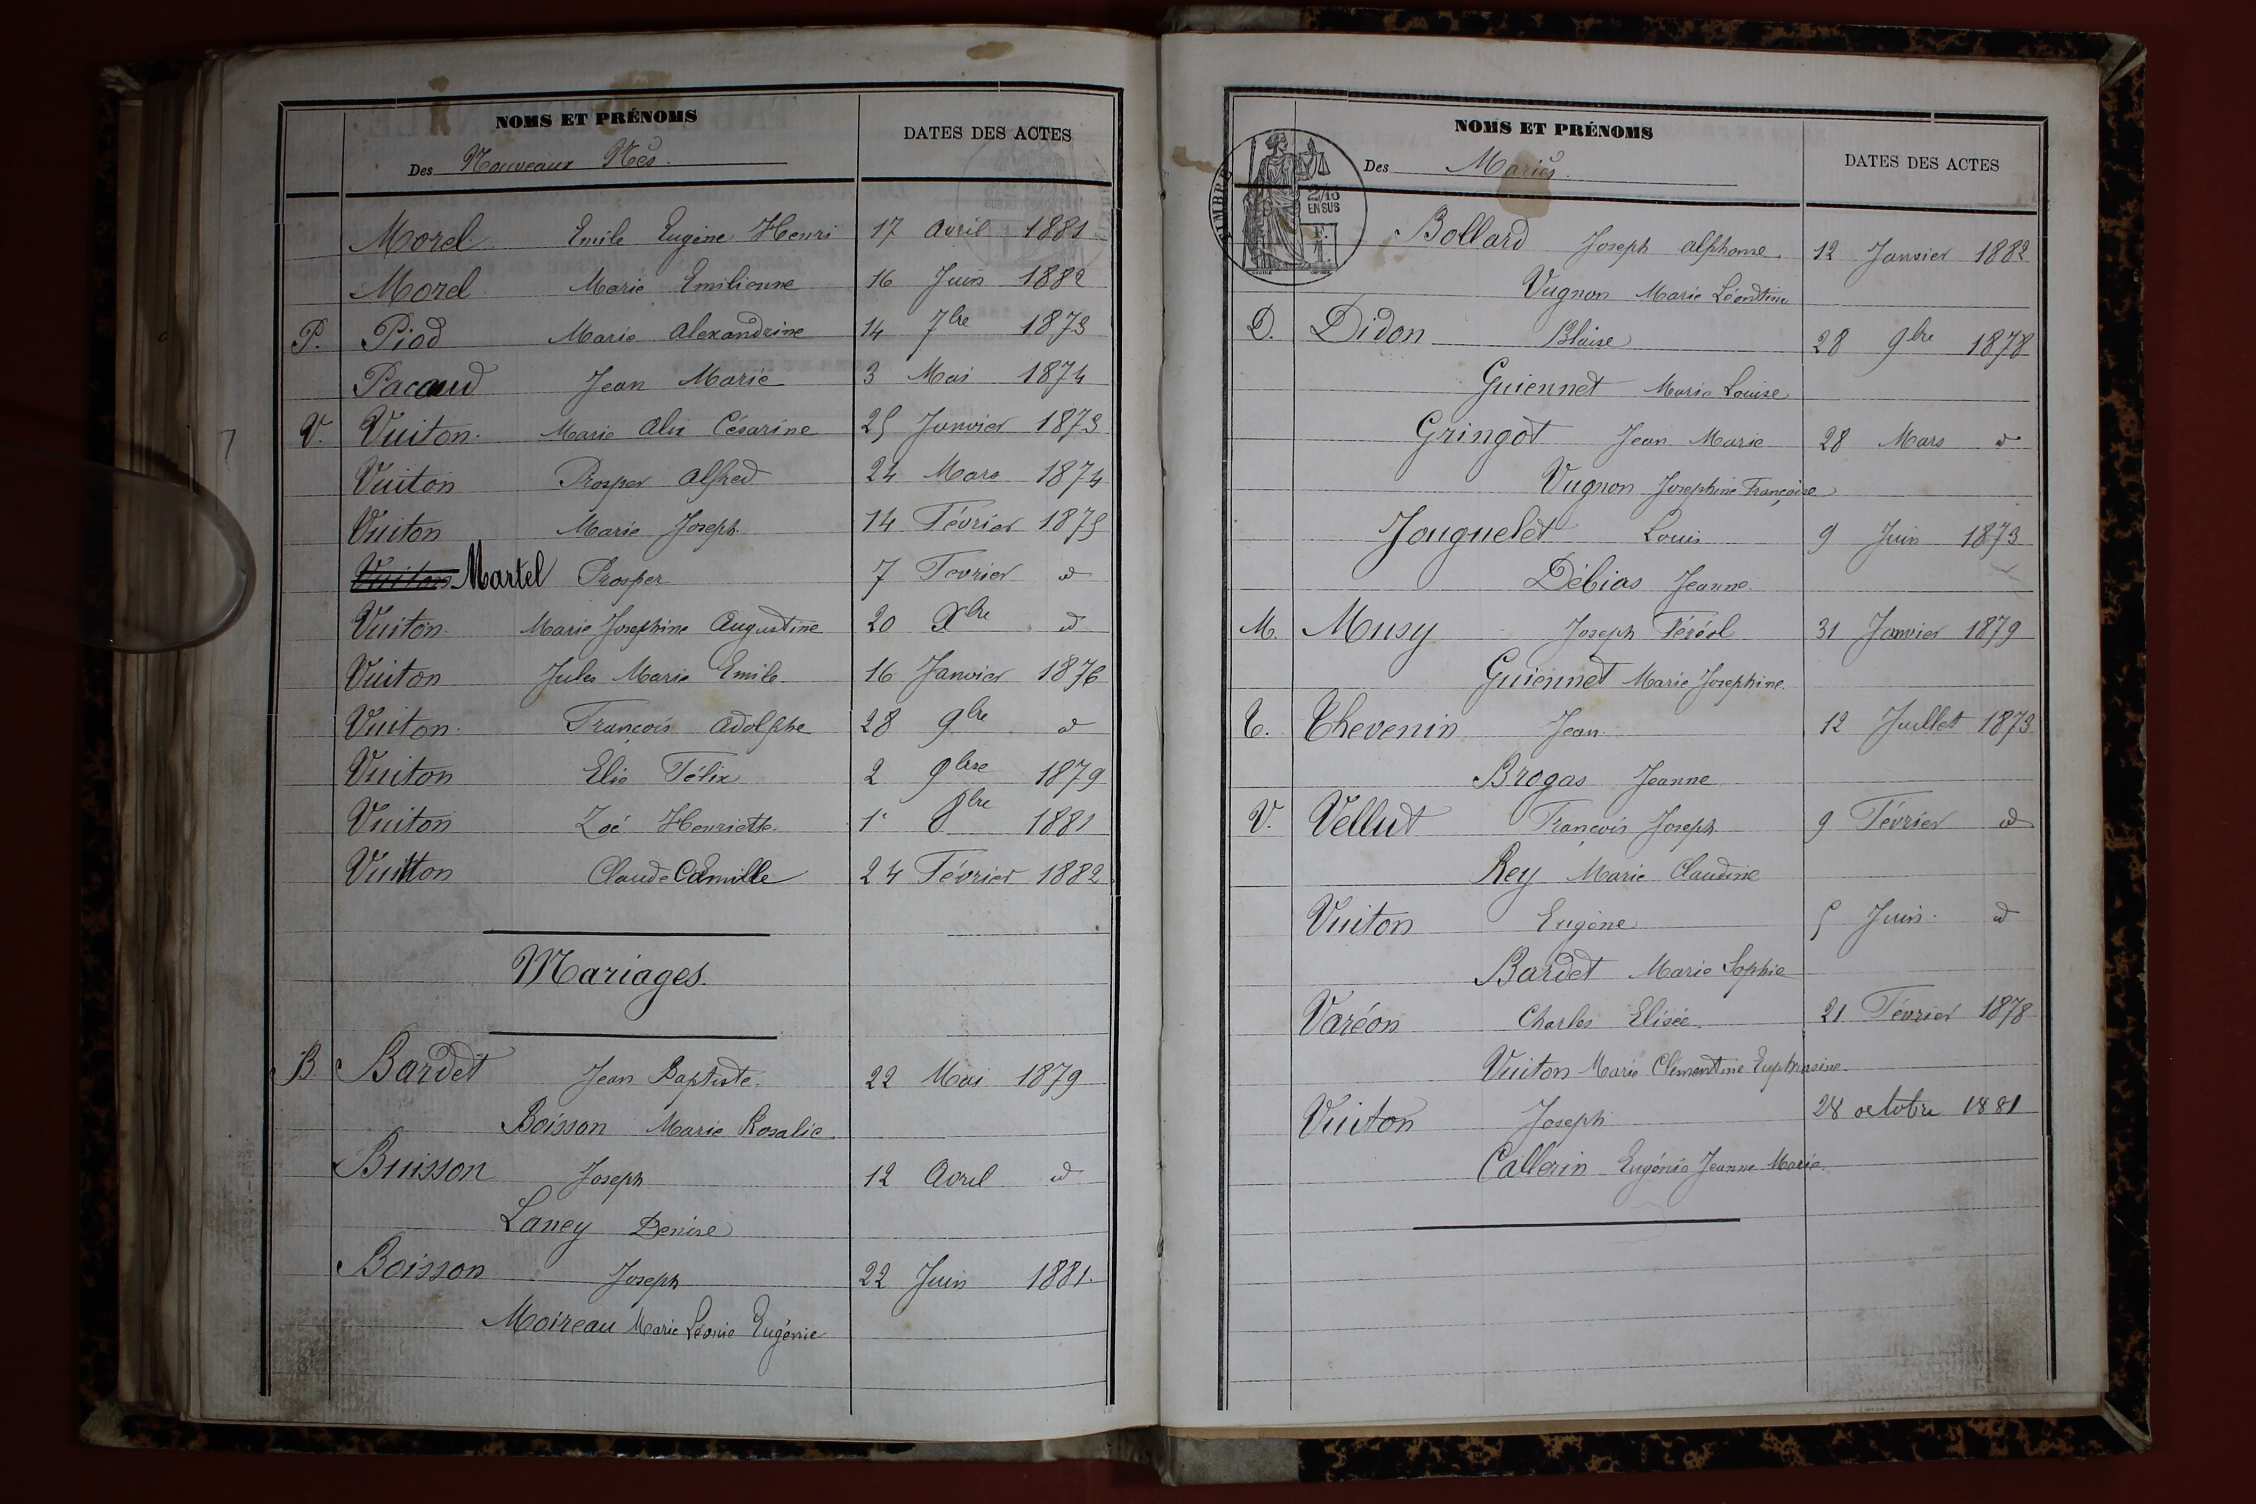 NOMS ET PRÉNOMS
DATES DES ACTES
Des Nouveaux Nés.
Morel Emile Eugène Henri 17 Avril 1881
Morel Marie Emilienne 16 Juin 1882
P. Piod Marie Alexandrine 14 7bre 1873
Pacaud Jean Marie 3 Mai 1874
V. Vuiton. Marie Alix Césarine 25 Janvier 1873
Vuiton Prosper Alfred 24 Mars 1874
Vuiton Marie Joseph. 14 Février 1875
Vuiton Martel Prosper 7 Fevrier d
Vuiton Marie Josephine Augustine 20 Xbre d
Vuiton Jules Marie Emile 16 Janvier 1876
Vuiton. François Adolphe 28 9bre d
Vuiton Elie Félix 2 9bre 1879
Vuiton Zoé Henriette. 1er 8bre 1881
Vuitton Claude Camille 24 Février 1882
Mariages.
B Bardet Jean Baptiste. 22 Mai 1879
Boisson Marie Rosalie
Buisson Joseph 12 Avril d
Laney Denise
Boisson Joseph 22 Juin 1881.
Moireau Marie Léonie Eugénie
NOMS ET PRÉNOMS
DATES DES ACTES
Des Mariés.
TIMBRE
2/10
EN SUS
Bollard Joseph Alphonse 12 Janvier 1882
Vugnon Marie Léontine
D. Didon Blaise 28 9bre 1878
Guiennet Marie Louise
Gringot Jean Marie 28 Mars d
Vugnon Josephine Françoise
Jouguelet Louis 9 Juin 1873
Débias Jeanne.
M. Musy Joseph Féréol 31 Janvier 1879
Guiennet Marie Josephine.
T. Thevenin Jean 12 Juillet 1873
Brogas Jeanne
V. Vellut François Joseph 9 Février d
Rey Marie Claudine
Vuiton Eugène 5 Juin. d
Bardet Marie Sophie
Varéon Charles Elisée. 21 Février 1878
Vuiton Marie Clémentine Euphrasine.
Vuiton Joseph 28 octobre 1881
Callerin Eugénie Jeanne Marie.